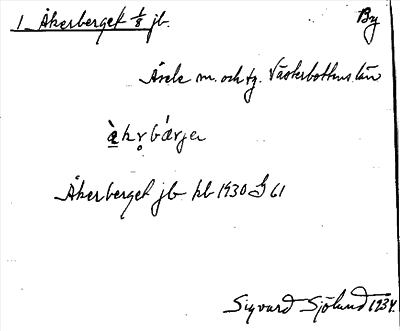 1 Åkerberget 1/8 jb. By
Åsele sn. och tg. Västerbottens län
Åkerberget jb kb 1930 S 61
Sigvard Sjölund 1934.